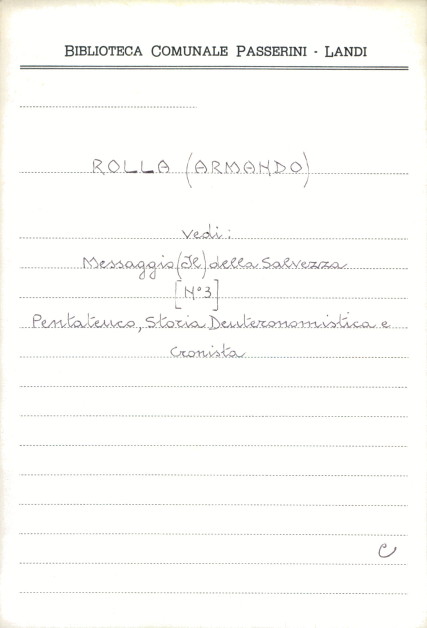 BIBLIOTECA COMUNALE PASSERINI - LANDI
ROLLA (ARMANDO)
vedi:
Messaggio (Il) della Salvezza
[N°3]
Pentateuco, Storia Deuteronomistica e
Cronista
C